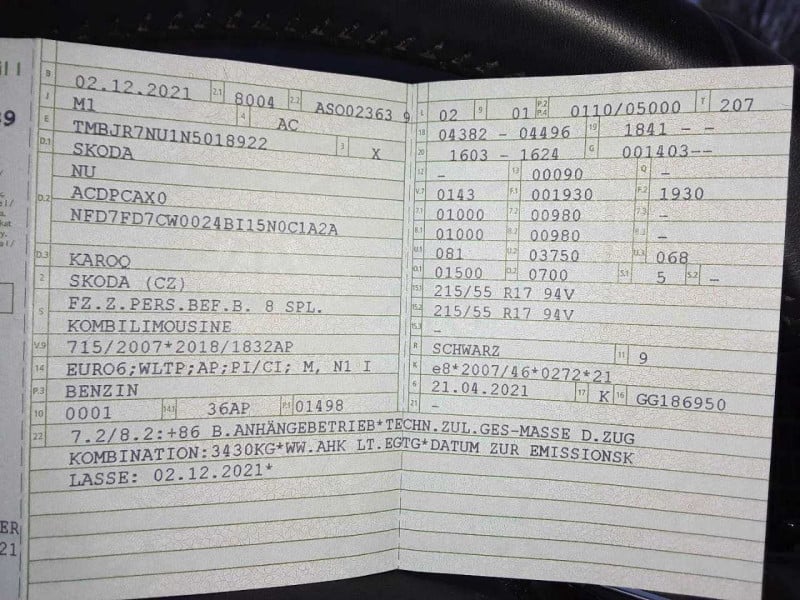 B 02.12.2021 2.1 8004 2.2 ASO02363 9
J M1 4 AC
E TMBJR7NU1N5018922 3 X
D.1 SKODA
NU
D.2 ACDPCAX0
NFD7FD7CW0024BI15N0C1A2A
D.3 KAROQ
2 SKODA (CZ)
5 FZ.Z.PERS.BEF.B. 8 SPL.
KOMBILIMOUSINE
V.9 715/2007*2018/1832AP
14 EURO6;WLTP;AP;PI/CI; M, N1 I
P.3 BENZIN
10 0001 14.1 36AP P.1 01498
L 02 9 01 P.2 P.4 0110/05000 T 207
18 04382 - 04496 19 1841 - -
20 1603 - 1624 G 001403--
12 - 13 00090 Q -
V.7 0143 F.1 001930 F.2 1930
7.1 01000 7.2 00980 7.3 -
8.1 01000 8.2 00980 8.3 -
U.1 081 U.2 03750 U.3 068
O.1 01500 O.2 0700 S.1 5 S.2 -
15.1 215/55 R17 94V
15.2 215/55 R17 94V
15.3 -
R SCHWARZ 11 9
K e8*2007/46*0272*21
6 21.04.2021 17 K 16 GG186950
21 -
22 7.2/8.2:+86 B.ANHÄNGEBETRIEB*TECHN.ZUL.GES-MASSE D.ZUG
KOMBINATION:3430KG*WW.AHK LT.EGTG*DATUM ZUR EMISSIONSK
LASSE: 02.12.2021*
ER
21